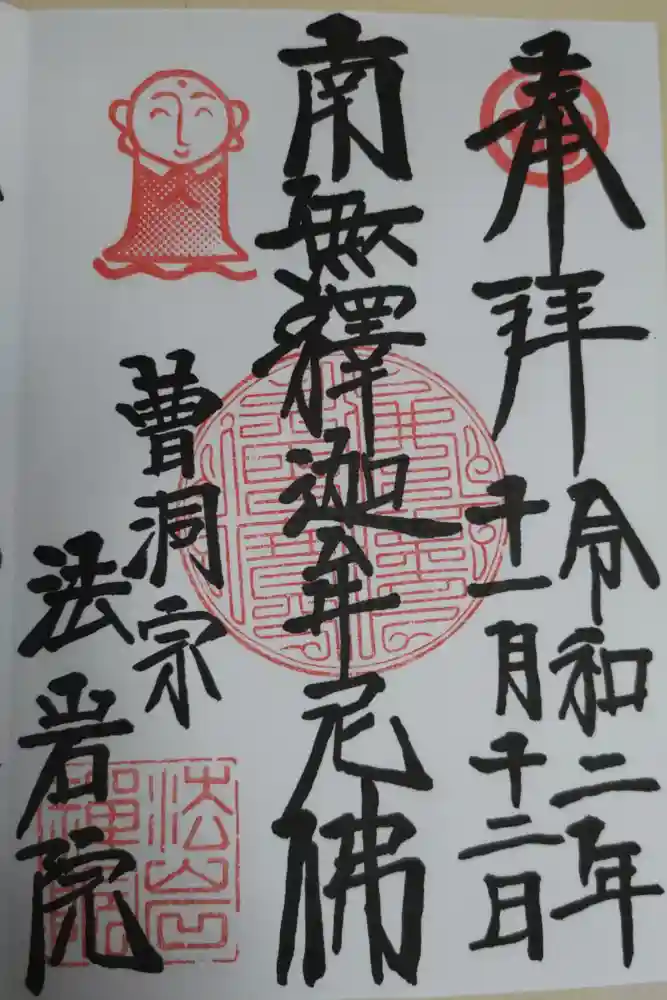 奉拝
令和二年
十一月十二日
南無釋迦牟尼佛
曹洞宗
法岩院